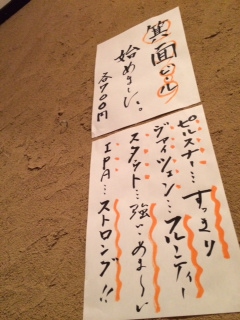 箕面ビール
始めました。
各700円
ピルスナー…すっきり
ヴァイツェン…フルーティー
スタウト…強い、あま〜い
IPA…ストロング!!